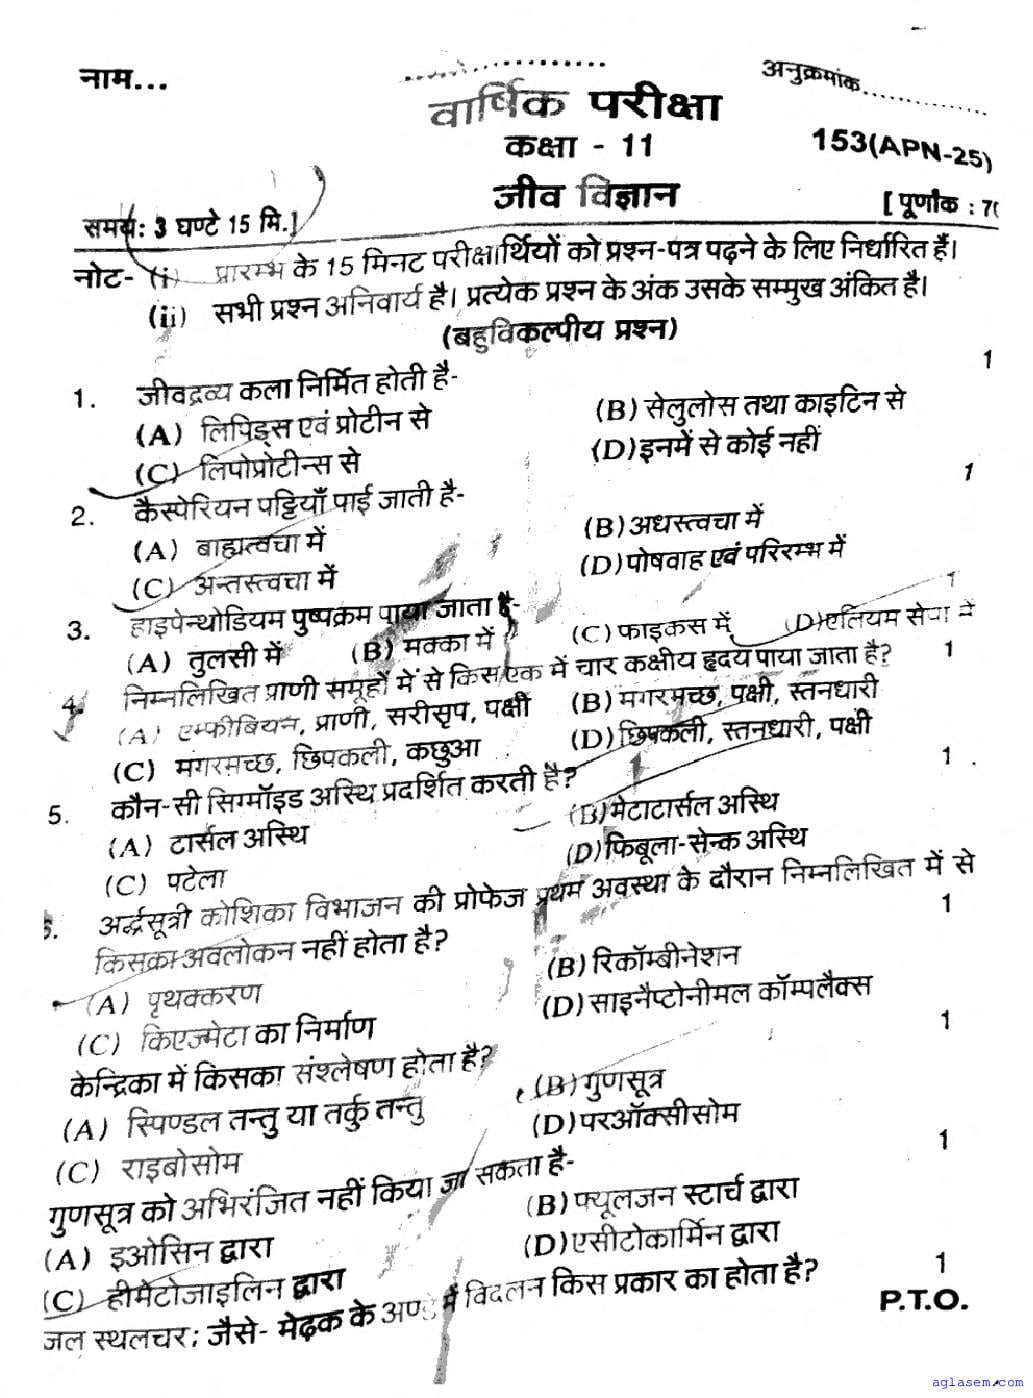 नाम...
अनुक्रमांक..................
वार्षिक परीक्षा
कक्षा - 11
153(APN-25)
जीव विज्ञान
समय: 3 घण्टे 15 मि.]
[ पूर्णांक : 70
नोट- (i) प्रारम्भ के 15 मिनट परीक्षार्थियों को प्रश्न-पत्र पढ़ने के लिए निर्धारित हैं।
(ii) सभी प्रश्न अनिवार्य है। प्रत्येक प्रश्न के अंक उसके सम्मुख अंकित है।
(बहुविकल्पीय प्रश्न)
1. जीवद्रव्य कला निर्मित होती है- 1
(A) लिपिड्स एवं प्रोटीन से (B) सेलुलोस तथा काइटिन से
(C) लिपोप्रोटीन्स से (D) इनमें से कोई नहीं
2. कैस्पेरियन पट्टियाँ पाई जाती है- 1
(A) बाह्यत्वचा में (B) अधस्त्वचा में
(C) अन्तस्त्वचा में (D) पोषवाह एवं परिरम्भ में
3. हाइपेन्थोडियम पुष्पक्रम पाया जाता है- 1
(A) तुलसी में (B) मक्का में (C) फाइकस में (D) एलियम सेपा में
4. निम्नलिखित प्राणी समूहों में से किस एक में चार कक्षीय हृदय पाया जाता है? 1
(A) एम्फीबियन, प्राणी, सरीसृप, पक्षी (B) मगरमच्छ, पक्षी, स्तनधारी
(C) मगरमच्छ, छिपकली, कछुआ (D) छिपकली, स्तनधारी, पक्षी
5. कौन-सी सिग्मॉइड अस्थि प्रदर्शित करती है? 1
(A) टार्सल अस्थि (B) मेटाटार्सल अस्थि
(C) पटेला (D) फिबूला-सेन्क अस्थि
6. अर्द्धसूत्री कोशिका विभाजन की प्रोफेज प्रथम अवस्था के दौरान निम्नलिखित में से
किसका अवलोकन नहीं होता है? 1
(A) पृथक्करण (B) रिकॉम्बीनेशन
(C) किएज्मेटा का निर्माण (D) साइनैप्टोनीमल कॉम्पलैक्स
केन्द्रिका में किसका संश्लेषण होता है? 1
(A) स्पिण्डल तन्तु या तर्कु तन्तु (B) गुणसूत्र
(C) राइबोसोम (D) परऑक्सीसोम
गुणसूत्र को अभिरंजित नहीं किया जा सकता है- 1
(A) इओसिन द्वारा (B) फ्यूलजन स्टार्च द्वारा
(C) हीमैटोजाइलिन द्वारा (D) एसीटोकार्मिन द्वारा
जल स्थलचर; जैसे- मेढ़क के अण्डे में विदलन किस प्रकार का होता है? 1
P.T.O.
aglasem.com